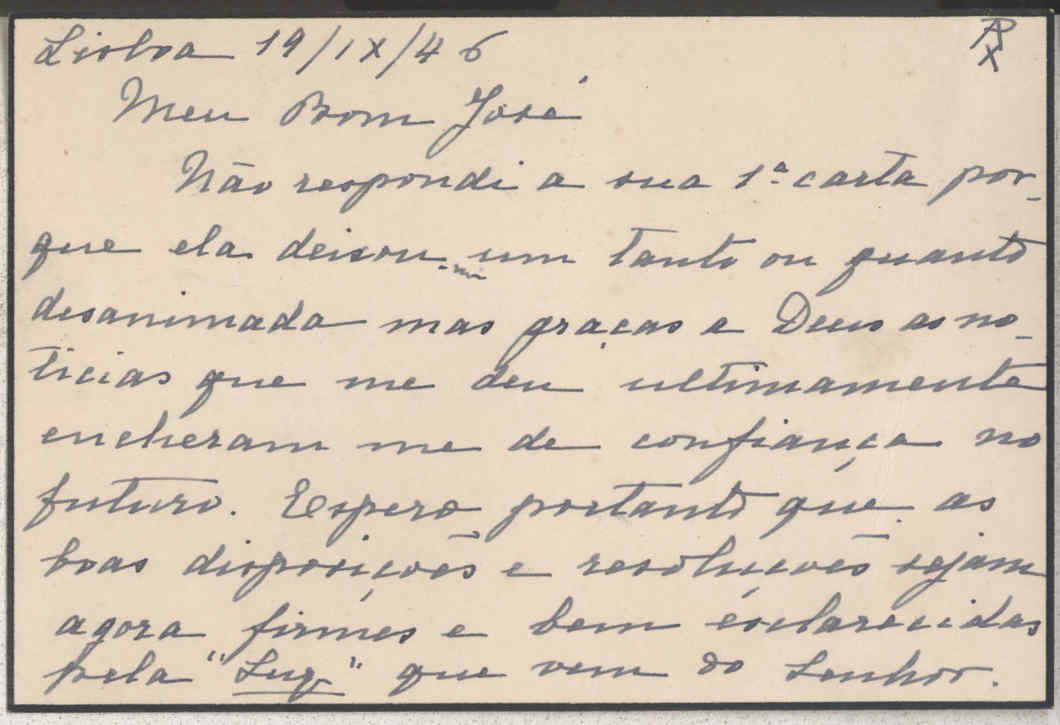 Lisboa 19/IX/46
Meu Bom José
Não respondi a sua 1ª carta por-
que ela deixou-me um tanto ou quanto
desanimada mas graças a Deus as no-
ticias que me deu ultimamente
encheram me de confiança no
futuro. Espero portanto que as
boas disposições e resoluções sejam
agora firmes e bem esclarecidas
pela "Luz" que vem do Senhor.